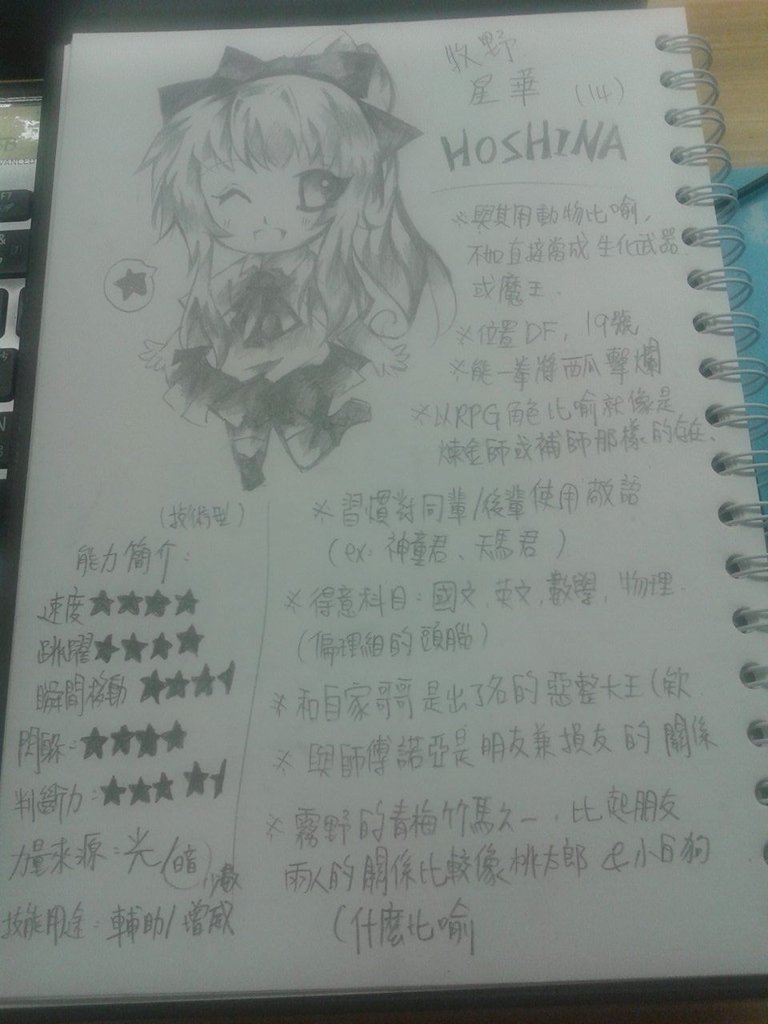 牧野
星華 (14)
HOSHINA
※與其用動物比喻,
不如直接當成生化武器
或魔王.
※位置DF, 19號
※能一拳將西瓜擊爛
※以RPG角色比喻就像是
煉金師或補師那樣的存在.
※習慣對同輩/後輩使用敬語
(ex: 神童君、天馬君)
※得意科目: 國文, 英文, 數學, 物理.
(偏理組的頭腦)
※和自家哥哥是出了名的惡整大王(欸
※與師傅諾亞是朋友兼損友的關係
※霧野的青梅竹馬之一, 比起朋友
兩人的關係比較像桃太郎&小白狗
(什麼比喻
(技術型)
能力簡介:
速度★★★★
跳躍★★★★
瞬間移動★★★
閃躲:★★★★
判斷力:★★★★
力量來源:光/暗 少數
技能用途:輔助/增威